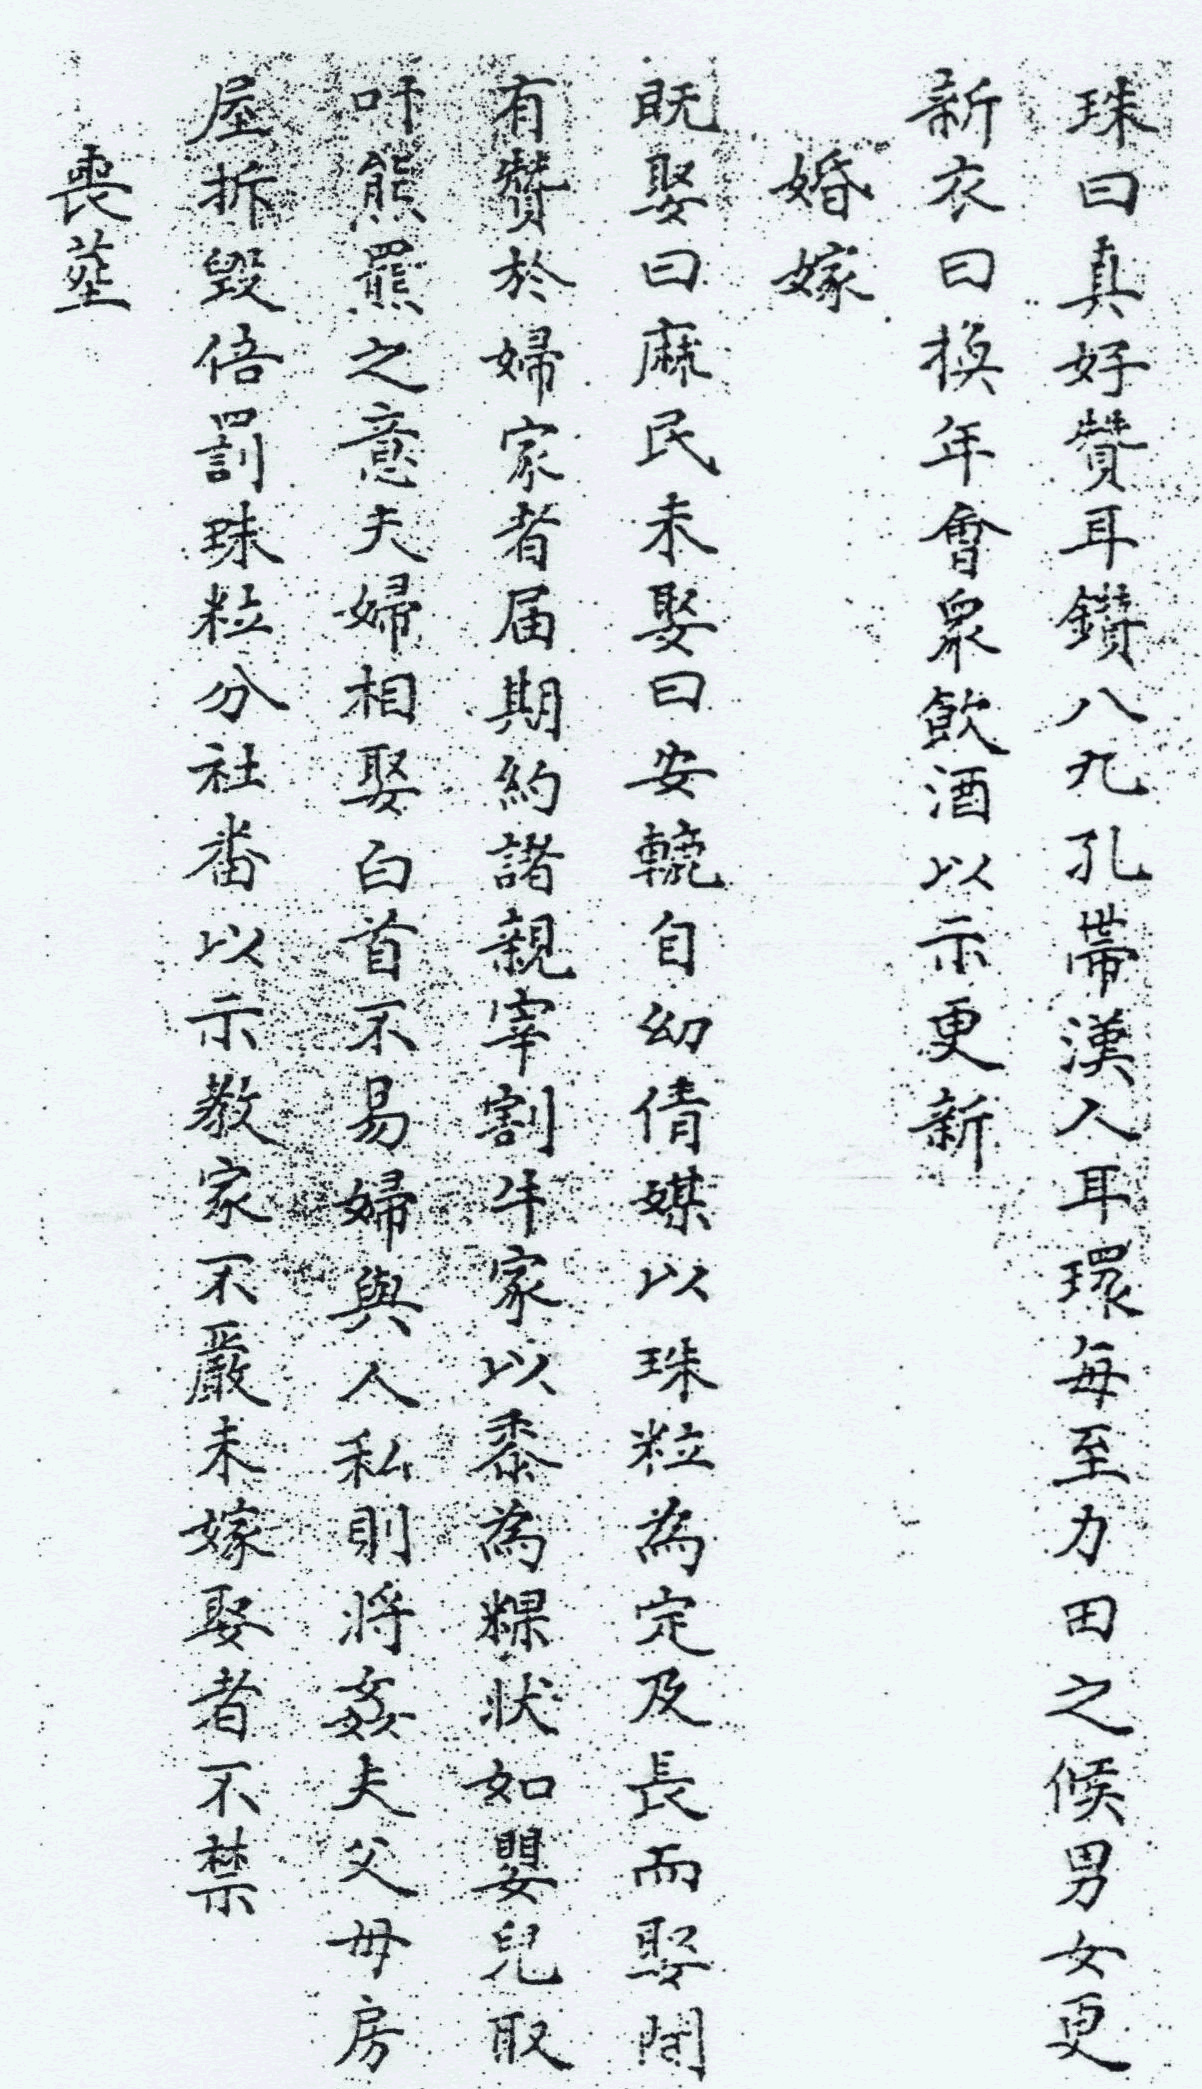 珠曰真好贊耳鑽八九孔帶漢人耳環每至力田之候男女更
新衣曰換年會眾飲酒以示更新
婚嫁
既娶曰麻民未娶曰安轆自幼倩媒以珠粒為定及長而娶間
有贅於婦家者届期約諸親宰割牛豕以黍為粿状如嬰兒取
叶熊羆之意夫婦相娶白首不易婦與人私則將姦夫父母房
屋拆毀倍罰珠粒分社番以示教家不嚴未嫁娶者不禁
喪塟